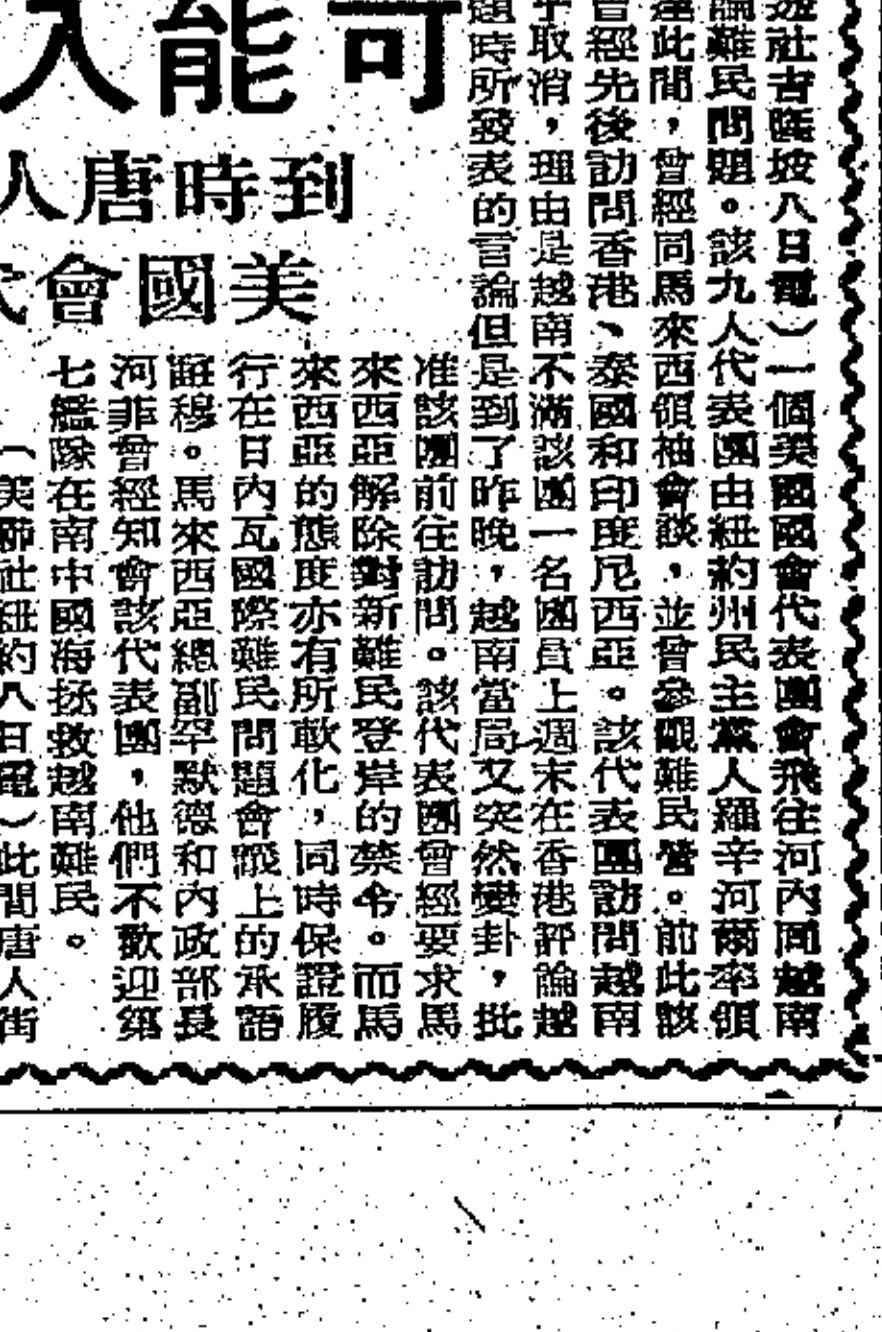 遊社吉隆坡八日電︶一個美國國會代表團會飛往河內同越南
論難民問題。該九人代表團由紐約州民主黨人羅辛河爾率領
達此間,曾經同馬來西領袖會談,並曾參觀難民營。前此該
曾經先後訪問香港、泰國和印度尼西亞。該代表團訪問越南
乎取消,理由是越南不滿該團一名團員上週末在香港評論越
題時所發表的言論但是到了昨晚,越南當局又突然變卦,批
准該團前往訪問。該代表團曾經要求馬
來西亞解除對新難民登岸的禁令。而馬
來西亞的態度亦有所軟化,同時保證履
行在日內瓦國際難民問題會議上的承諾
穆。馬來西亞總副罕默德和內政部長
河菲曾經知會該代表團,他們不歡迎第
七艦隊在南中國海拯救越南難民。
︵美聯社紐約八日電︶此間唐人街
可能入
到時唐人
美國會代